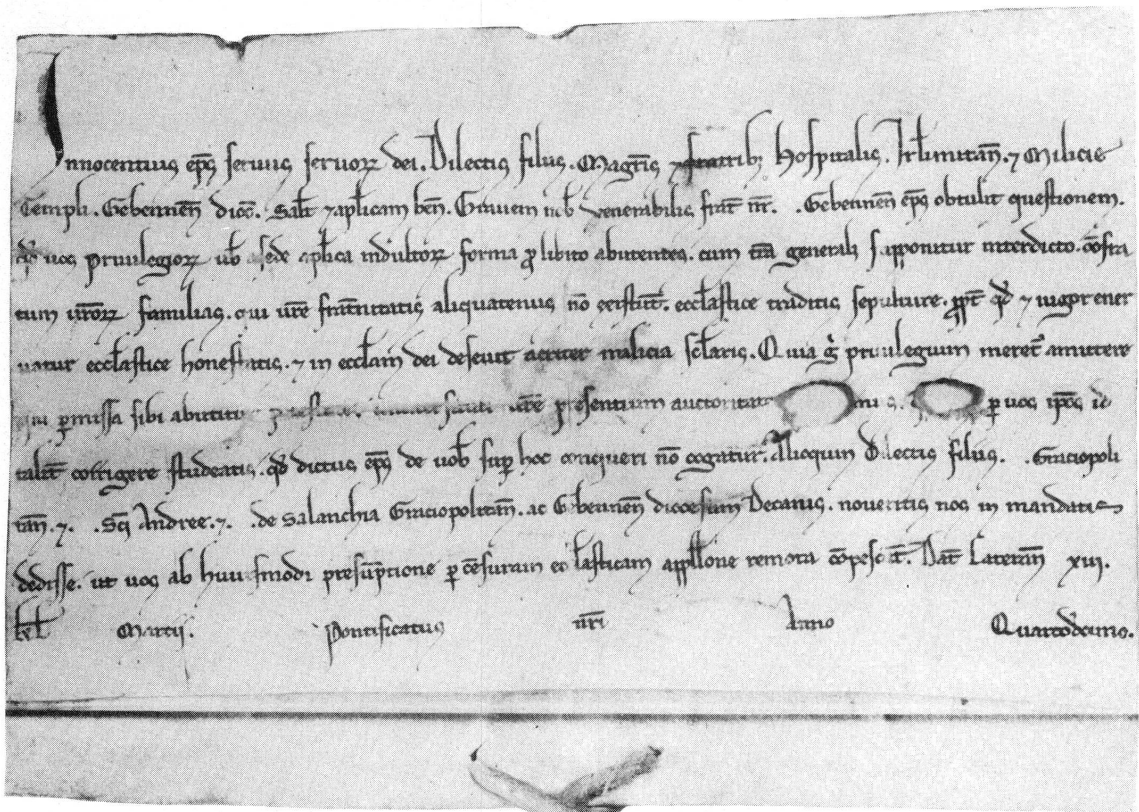 Innocentius ep̄s seruus seruoꝝ dei. Dilectis filiis. Magr̄is ⁊ fratribꝫ Hospitalis. Jrl̄imitan̄. ⁊ Milicie
Templi. Gebennen̄ dioc̄. Sal̄t ⁊ ap̄licam ben̄. Grauem nob̄ venerabilis frat̄ nr̄. . Gebennen̄ ep̄s obtulit questionem.
qd̄ uos priuilegioꝝ uob̄ a sede ap̄lica indultoꝝ forma ꝓ libito abutentes. cum tr̄a generali supponitur interdicto.
tum ur̄oꝝ familias. qui ur̄e fr̄at̄nitatis aliquatenus nō existūt. eccl̄astice traditis sepulture. ꝓpt̄ qd̄ ⁊ uigor ener
uatur eccl̄astice honestatis. ⁊ in eccl̄am dei deseuit acriter malicia scl̄aris. Quia ḡ priuilegium meret̄ amittere
qui ꝑmissa sibi abutitur ur̄e presentium auctoritate ꝑ uos ip̄os id
talit̄ corrigere studeatis. qd̄ dictus ep̄s de uob̄ suꝑ hoc conqueri nō cogatur. Alioquin Dilectis filiis. . Graciopoli
tan̄. ⁊. . Sc̄i Andree. ⁊. . de Salanchia Graciopolitan̄. ac Gebennen̄ diocesum Decanis. noueritis nos in mandatis
dedisse. ut uos ab huiusmodi presūptione ꝑ cēsuram eccl̄asticam appll̄one remota cōpescāt. Dat̄ Lateran̄ xvi.
kl̄ Martii. Pontificatus nr̄i Anno Quartodecimo.